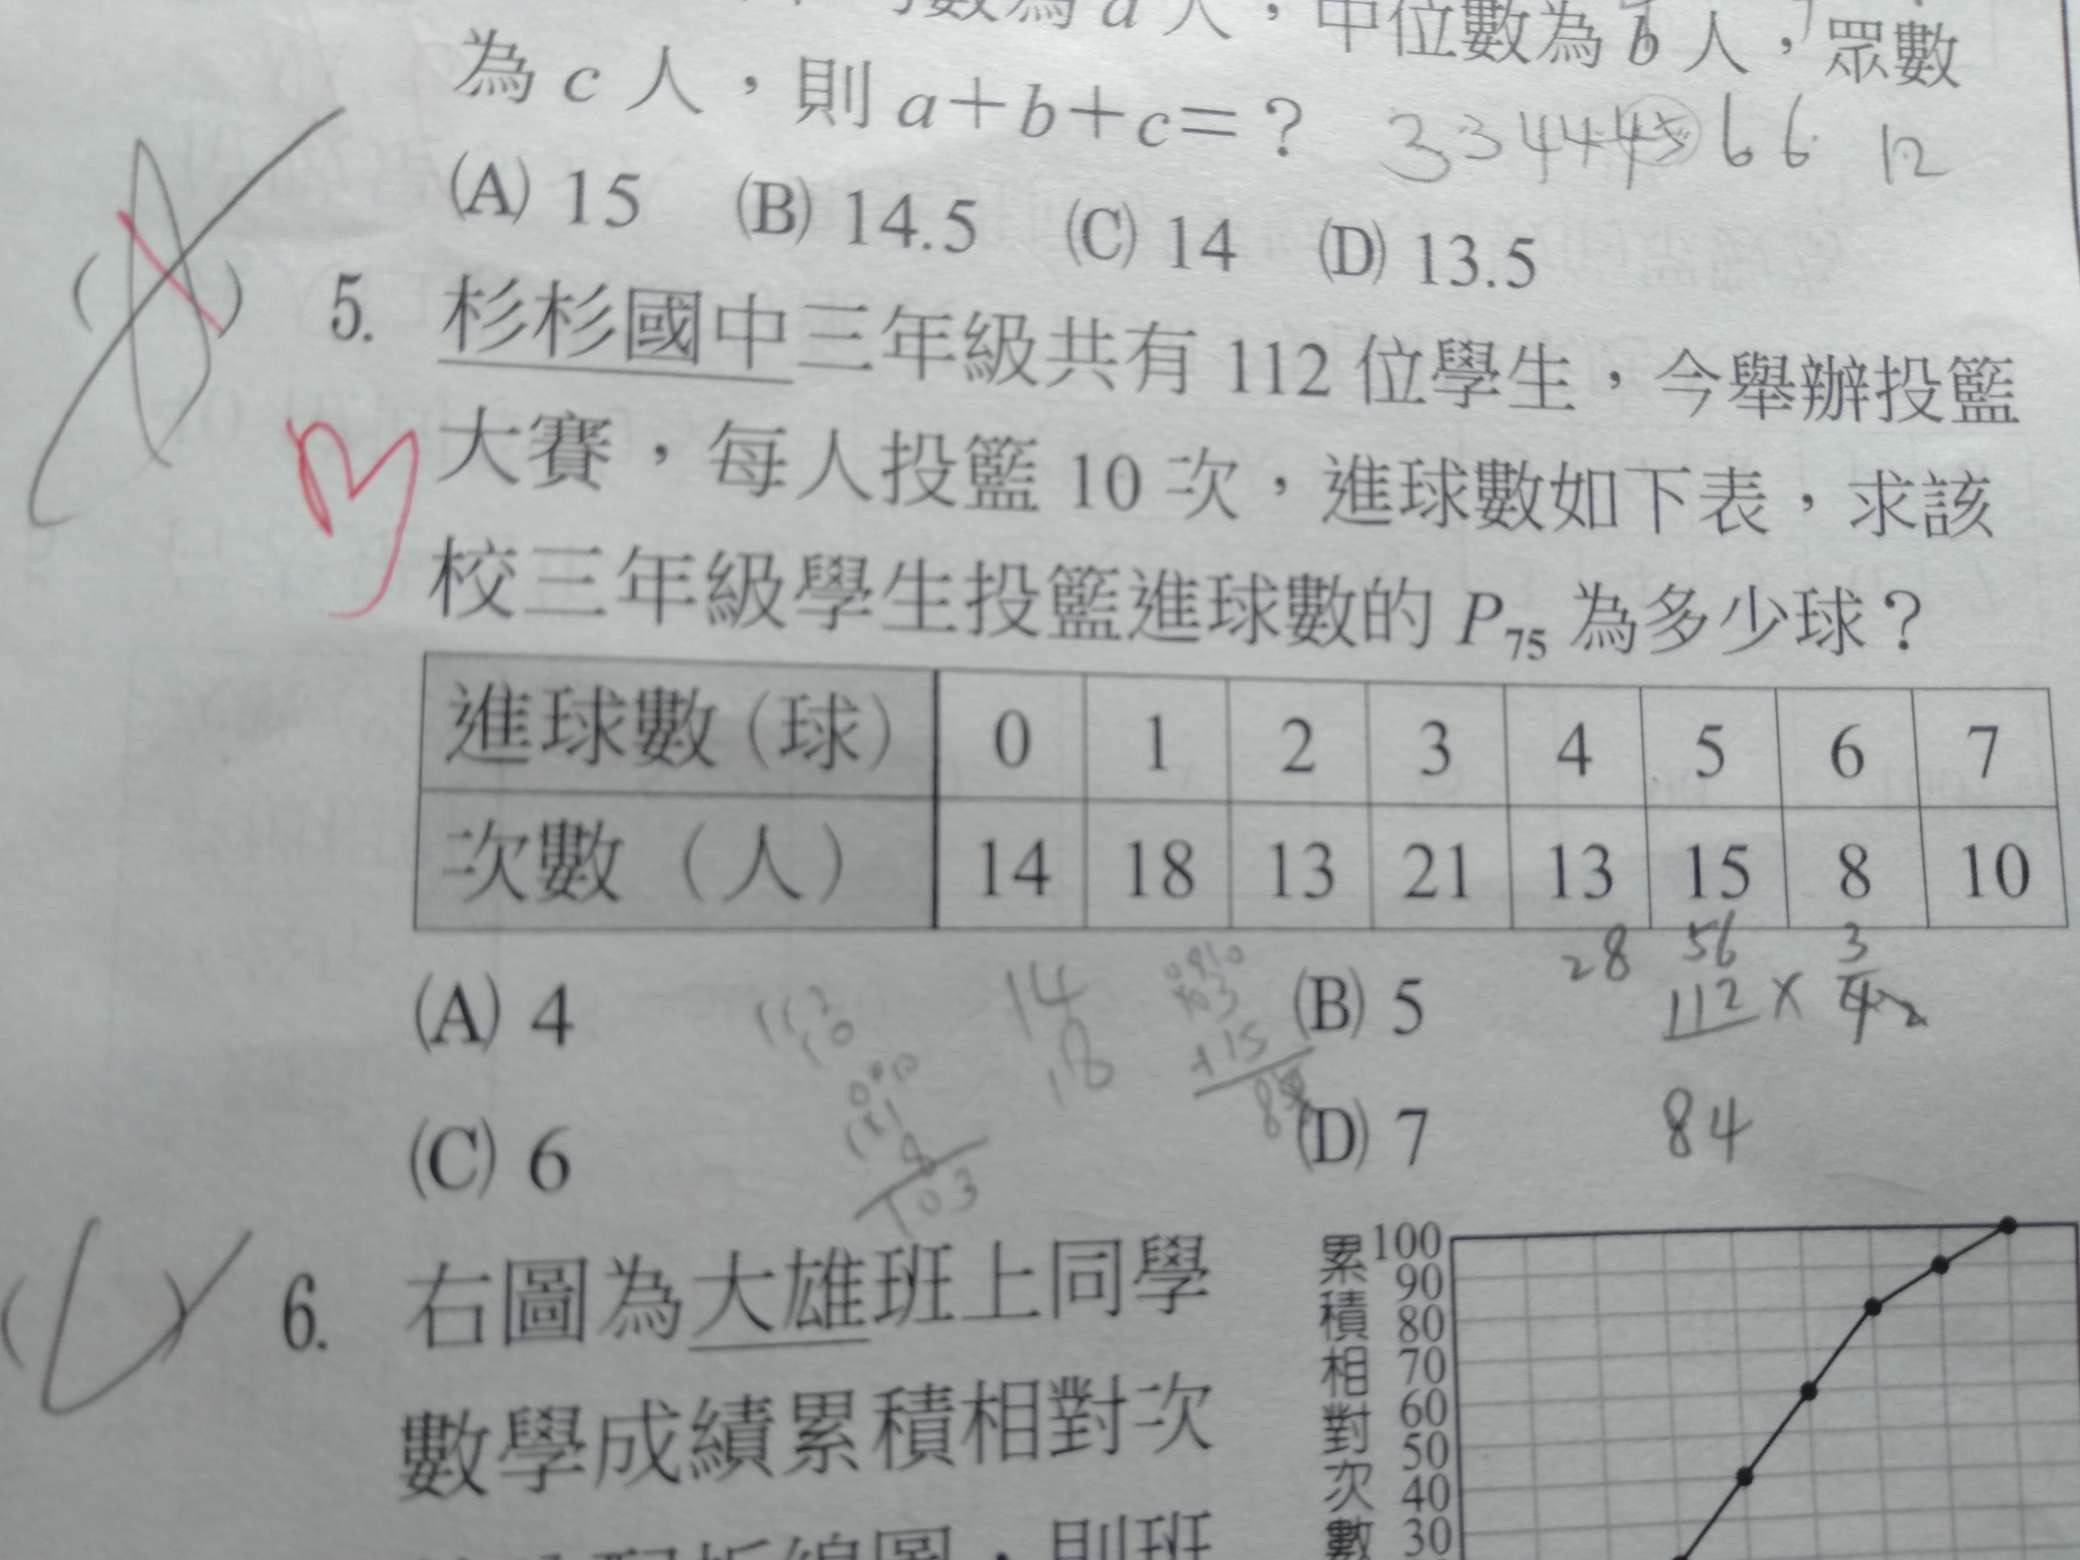 數為 a 人，中位數為 b 人，眾數
為 c 人，則 a＋b＋c＝？ 3 3 4 4 4 5 6 6 12
(A) 15 (B) 14.5 (C) 14 (D) 13.5
( ) 5. 杉杉國中三年級共有 112 位學生，今舉辦投籃
大賽，每人投籃 10 次，進球數如下表，求該
校三年級學生投籃進球數的 P75 為多少球？
進球數（球） 0 1 2 3 4 5 6 7
次數（人） 14 18 13 21 13 15 8 10
28 56 3
(A) 4 112 10 14 18 103 +15 (B) 5 112 × 4 2
(C) 6 8 103 (D) 7 84
( ) 6. 右圖為大雄班上同學
數學成績累積相對次
圖，則班
累積相對次數
100
90
80
70
60
50
40
30